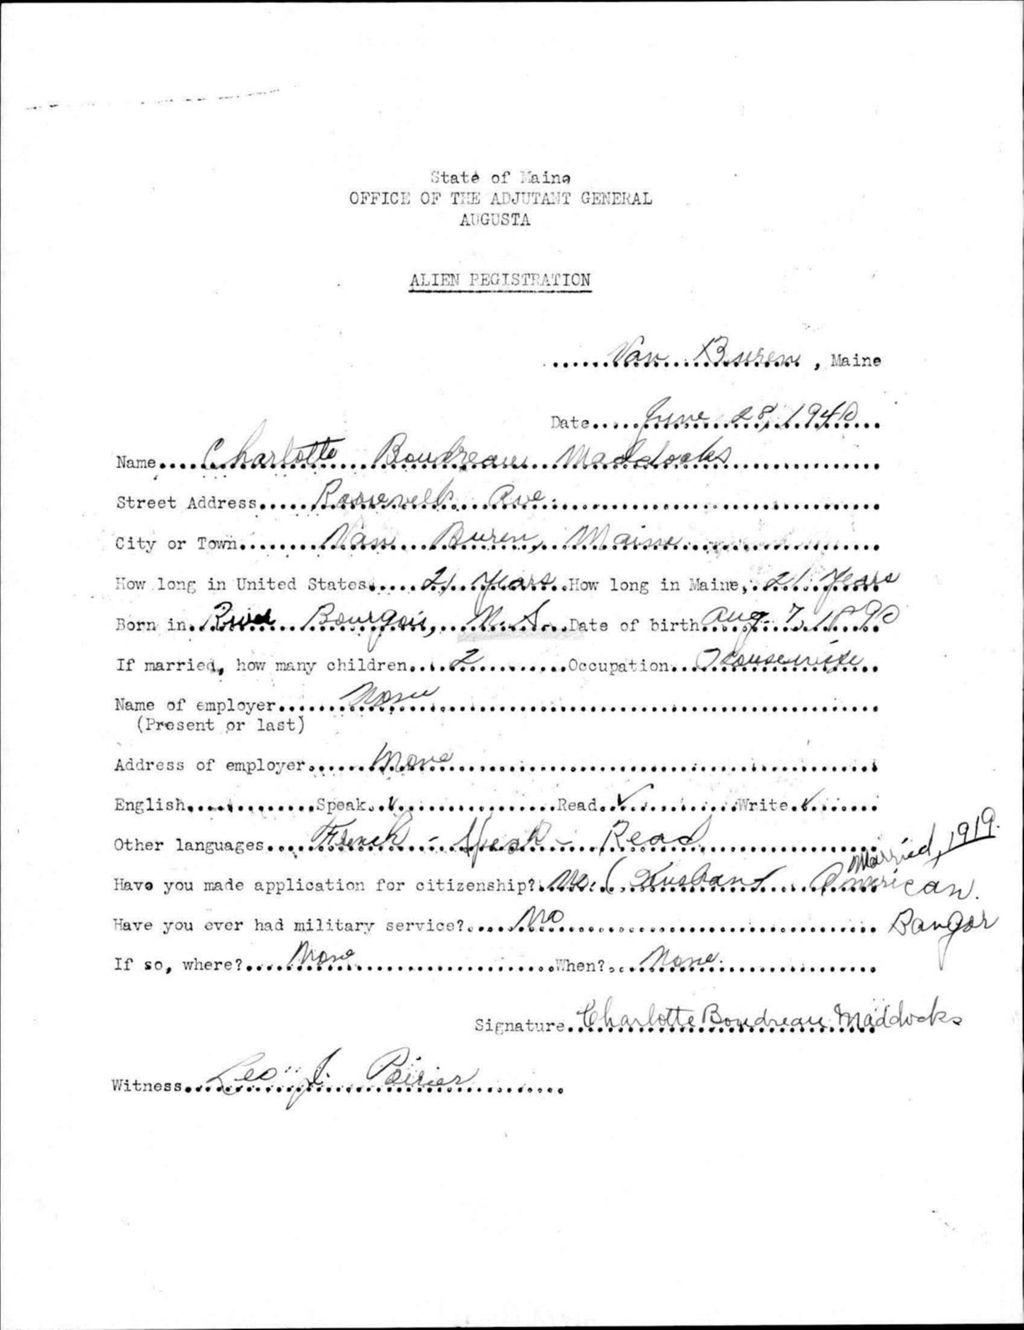 State of Maine
OFFICE OF THE ADJUTANT GENERAL
AUGUSTA
ALIEN REGISTRATION
Van Buren, Maine
Date June 28, 1940
Name Charlotte Boudreau Maddocks
Street Address Roosevelt Ave.
City or Town Van Buren, Maine
How long in United States 21 Years How long in Maine, 21 Years
Born in River Bourgois, N.S. Date of birth Aug. 7, 1890
If married, how many children 2 Occupation Housewife
Name of employer None
(Present or last)
Address of employer None
English Speak ✓ Read ✓ Write ✓
Other languages French - Speak - Read
Married, 1919.
Have you made application for citizenship? No. (Husband American.
Have you ever had military service? No Bangor
If so, where? None When? None.
Signature Charlotte Boudreau Maddocks
Witness Leo J. Poirier